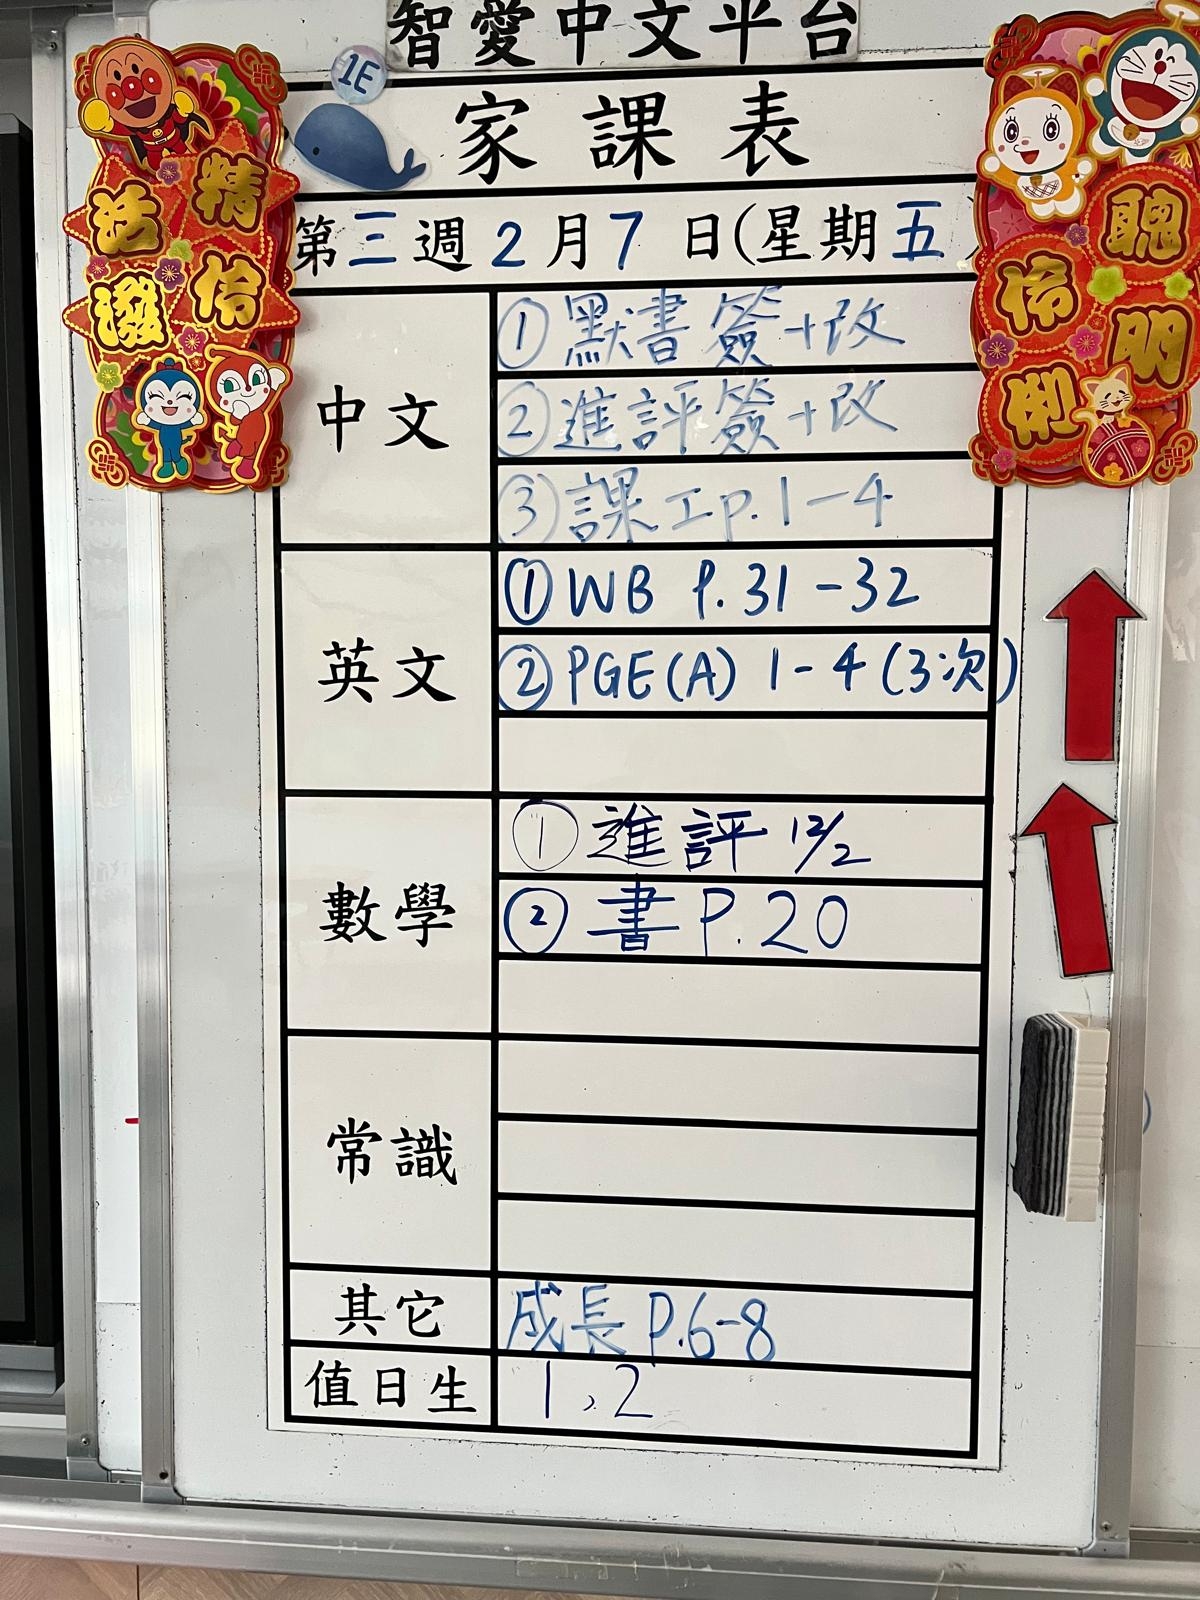 智愛中文平台
1E
家課表
第三週2月7日(星期五)
中文
①默書簽+改
②進評簽+改
③課工p.1-4
英文
①WB P.31-32
②PGE(A) 1-4(3次)
數學
①進評12/2
②書P.20
常識
其它
成長P.6-8
值日生
1,2
精伶
活潑
聰明
伶俐